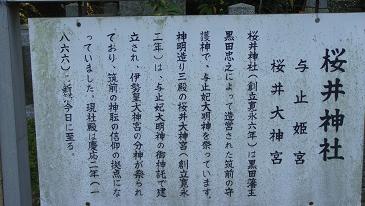 桜井神社
与止姫宮
桜井大神宮
桜井神社(創立寛永六年)は黒田藩主
黒田忠之によって造営された筑前の守
護神で、与止妃大明神を祭っています。
神明造り三殿の桜井大神宮(創立寛永
二年)は、与止妃大明神の御神託で建
立され、伊勢皇大神宮の分神が祭られ
ており、筑前の神耘の信仰の拠点にな
っていました。現社殿は慶応二年(一
八六六)に 今日に至る。